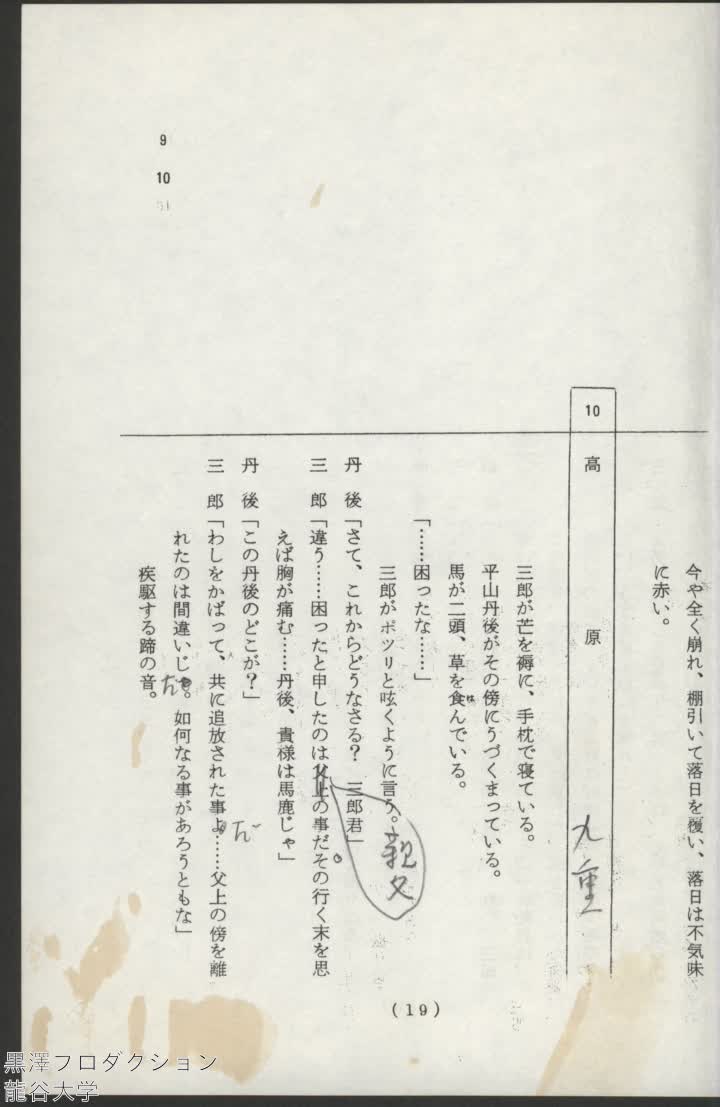 今や全く崩れ、棚引いて落日を覆い、落日は不気味
に赤い。
10 高原
九重
三郎が芒を褥に、手枕で寝ている。
平山丹後がその傍にうづくまっている。
馬が二頭、草を食んでいる。
は
「……困ったな……」
三郎がポツリと呟くように言う。
丹後「さて、これからどうなさる? 三郎君」
親父
三郎「違う……困ったと申したのは父上の事だ。その行く末を思
えば胸が痛む……丹後、貴様は馬鹿じゃ」
丹後「この丹後のどこが?」
三郎「わしをかばって、共に追放された事よ……父上の傍を離
だ
れたのは間違いじゃ。如何なる事があろうともな」
だ
疾駆する蹄の音。
9
10
(19)
黒澤プロダクション
龍谷大学